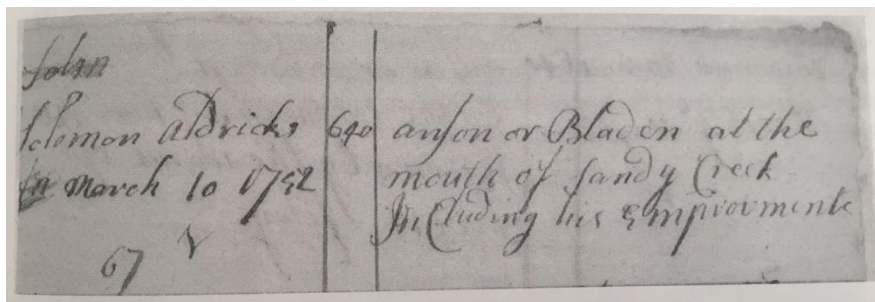 John
Solomon Aldricks 640 anson or Bladen at the
March 10 1752 mouth of Sandy Creek
Including his Emprovments
67